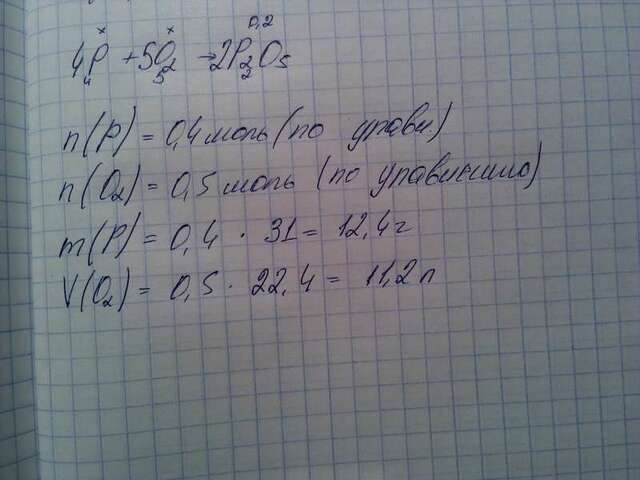 x x 0,2
4P + 5O₂ → 2P₂O₅
4 5 2
n(P) = 0,4 моль (по уравн)
n(O₂) = 0,5 моль (по уравнению)
m(P) = 0,4 · 31 = 12,4 г
V(O₂) = 0,5 · 22,4 = 11,2 л